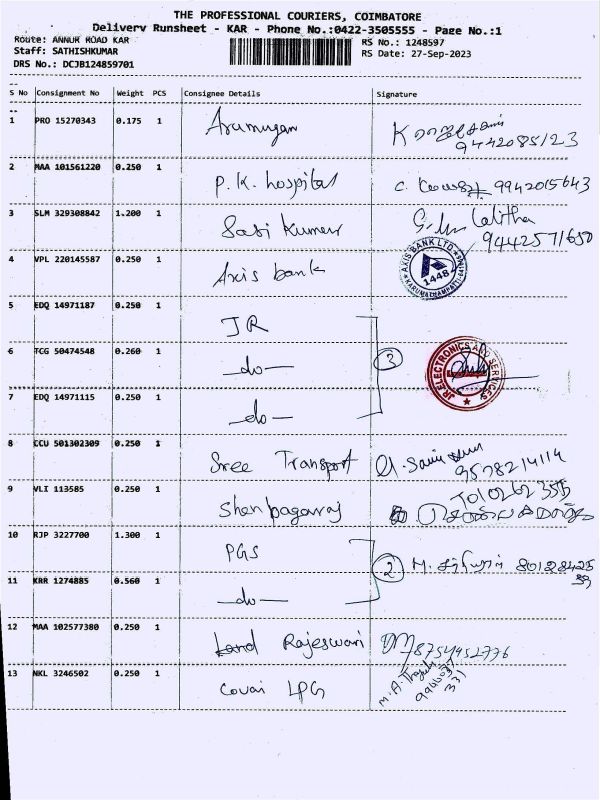 THE PROFESSIONAL COURIERS, COIMBATORE
Delivery Runsheet - KAR - Phone No.:0422-3505555 - Page No.:1
Route: ANNUR ROAD KAR
RS No.: 1248597
Staff: SATHISHKUMAR
RS Date: 27-Sep-2023
DRS No.: DCJB124859701
S No Consignment No Weight PCS Consignee Details Signature
1 PRO 15270343 0.175 1 Arumugam
9442085123
2 MAA 101561220 0.250 1 P.K. hospital 9942015643
3 SLM 329308842 1.200 1 Sasi Kumar Lalitha
9442571650
4 VPL 220145587 0.250 1 Axis bank
AXIS BANK LTD. 1448
5 EDQ 14971187 0.250 1 JR
6 TCG 50474548 0.260 1 -do- 3
JR ELECTRONICS AND SERVICES
7 EDQ 14971115 0.250 1 -do-
8 CCU 501302309 0.250 1 Sree Transport
9578214114
9 VLI 113585 0.250 1 Shenbagaraj
10 RJP 3227700 1.300 1 PGS
2 M. 80128425
39
11 KRR 1274885 0.560 1 -do-
12 MAA 102577380 0.250 1 Rajeswari 8754952776
13 NKL 3246502 0.250 1 Covai LPG